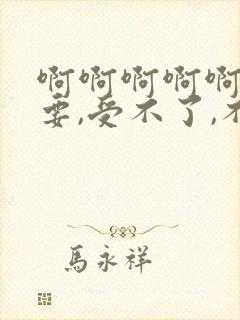 啊啊啊啊啊
要,受不了,不
馬永祥